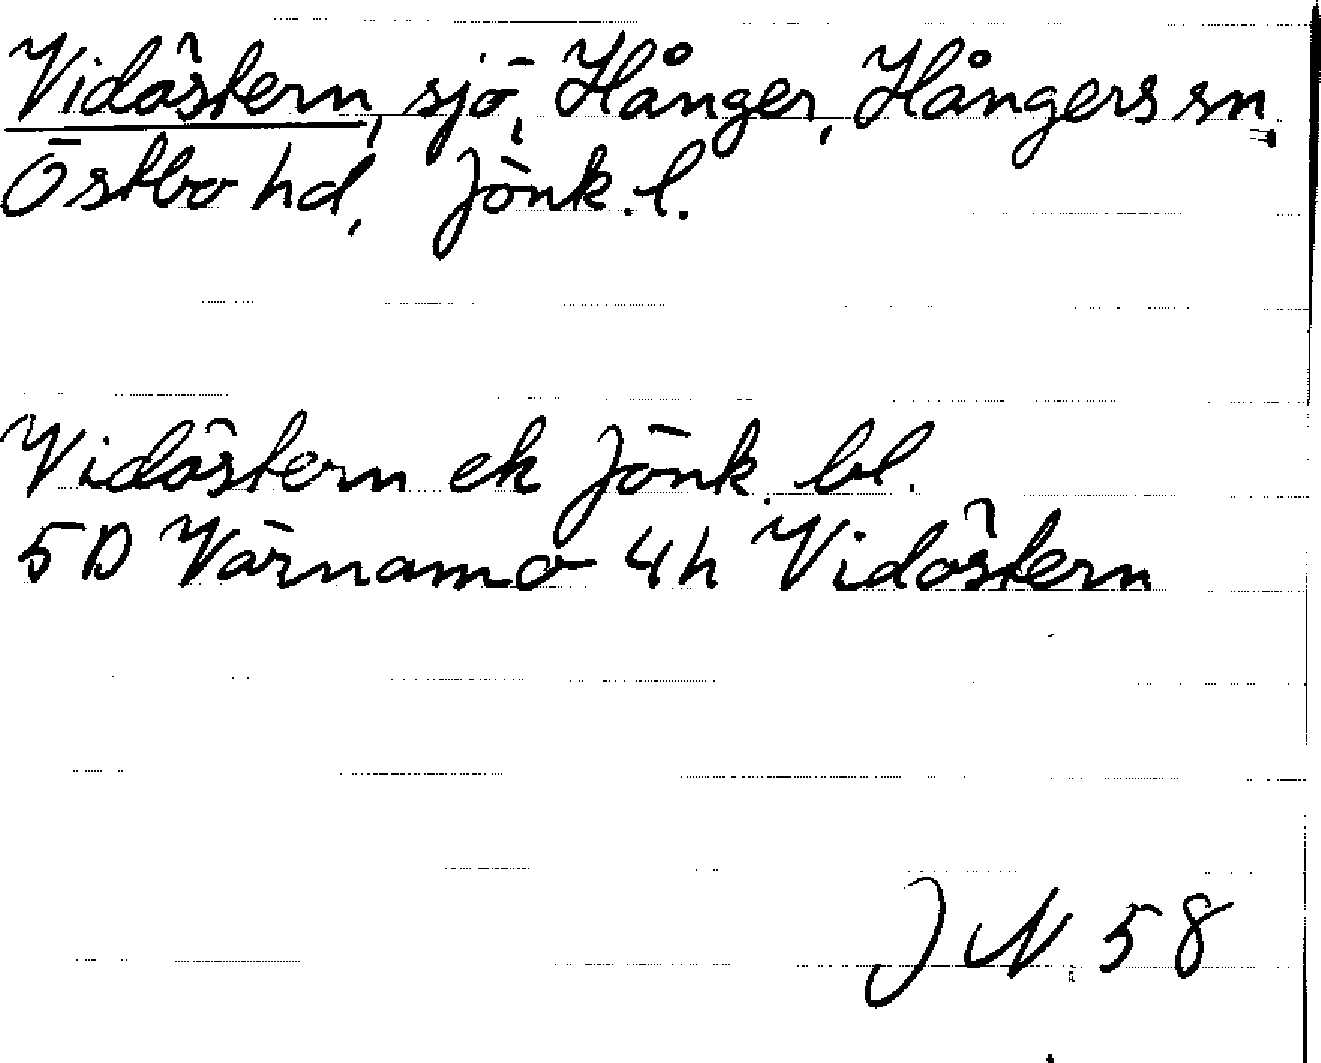 Vidöstern, sjö, Hånger, Hångers sn,
Östbo hd, Jönk.l.
Vidöstern ek Jönk. bl.
5D Värnamo 4h Vidöstern
JN 58